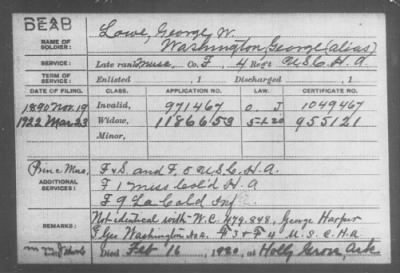 DEAB
NAME OF SOLDIER: Lowe, George W.
Washington, George (alias)
SERVICE: Late rank Musc, Co. F, 4 Reg't U.S.C.H.A.
TERM OF SERVICE: Enlisted , 1 Discharged , 1
DATE OF FILING. CLASS. APPLICATION NO. LAW. CERTIFICATE NO.
1890 Nov. 19 Invalid, 971467 O. J 1049467
1922 Mar 23 Widow, 1186653 5-1-20 955121
Minor,
Prin. Mus,
F & S. and F, 5 U.S.C.H.A.
ADDITIONAL SERVICES: F 1 Miss Col'd H A
F 9 La Cold Inf
REMARKS: Not identical with W.C. 479.848, George Harper
Geo Washington F 3 & F 4 U.S.C.H.A
Died Feb 16, 1920, at Holly Grove, Ark